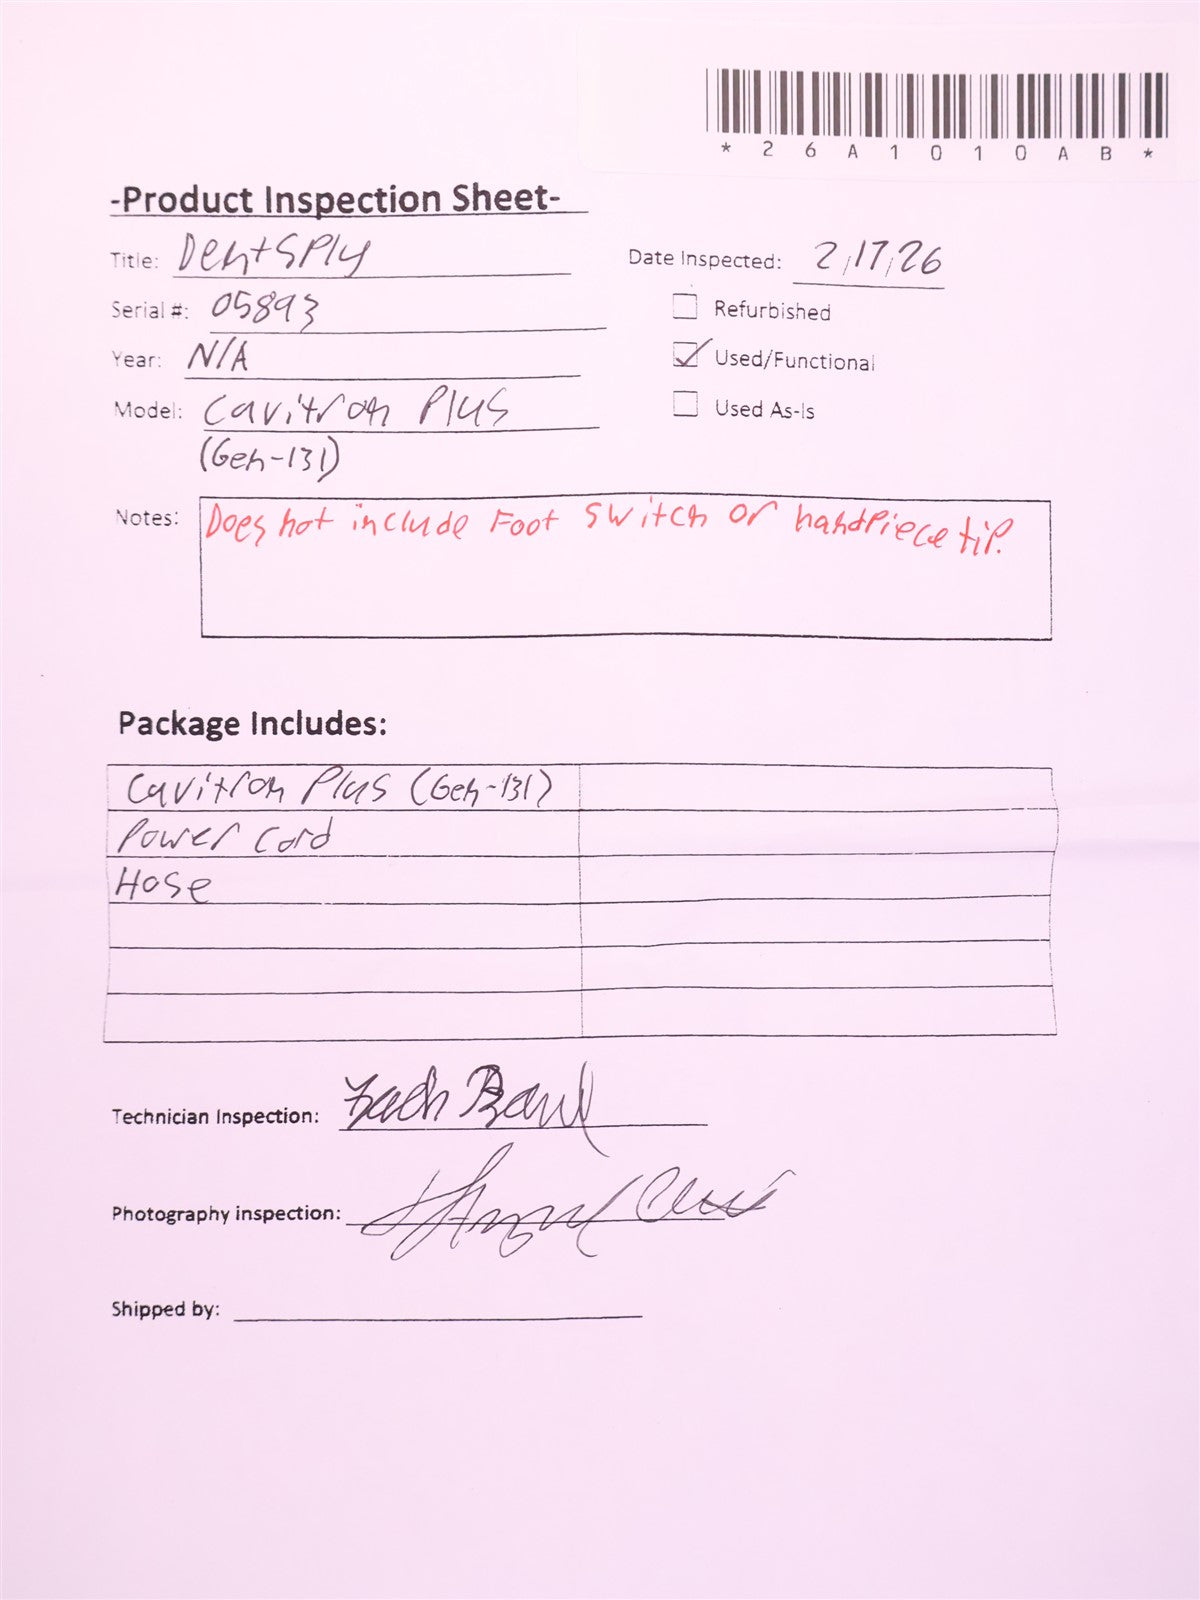 *26A1010AB*
-Product Inspection Sheet-
Title: DentSPly
Date Inspected: 2/17/26
Serial #: 05893
Refurbished
Year: N/A
Used/Functional
Model: Cavitron Plus
Used As-Is
(Gen-131)
Notes: Does not include Foot switch or handpiece tip.
Package Includes:
Cavitron Plus (Gen-131)
Power Cord
Hose
Technician Inspection: Zach
Photography inspection:
Shipped by: